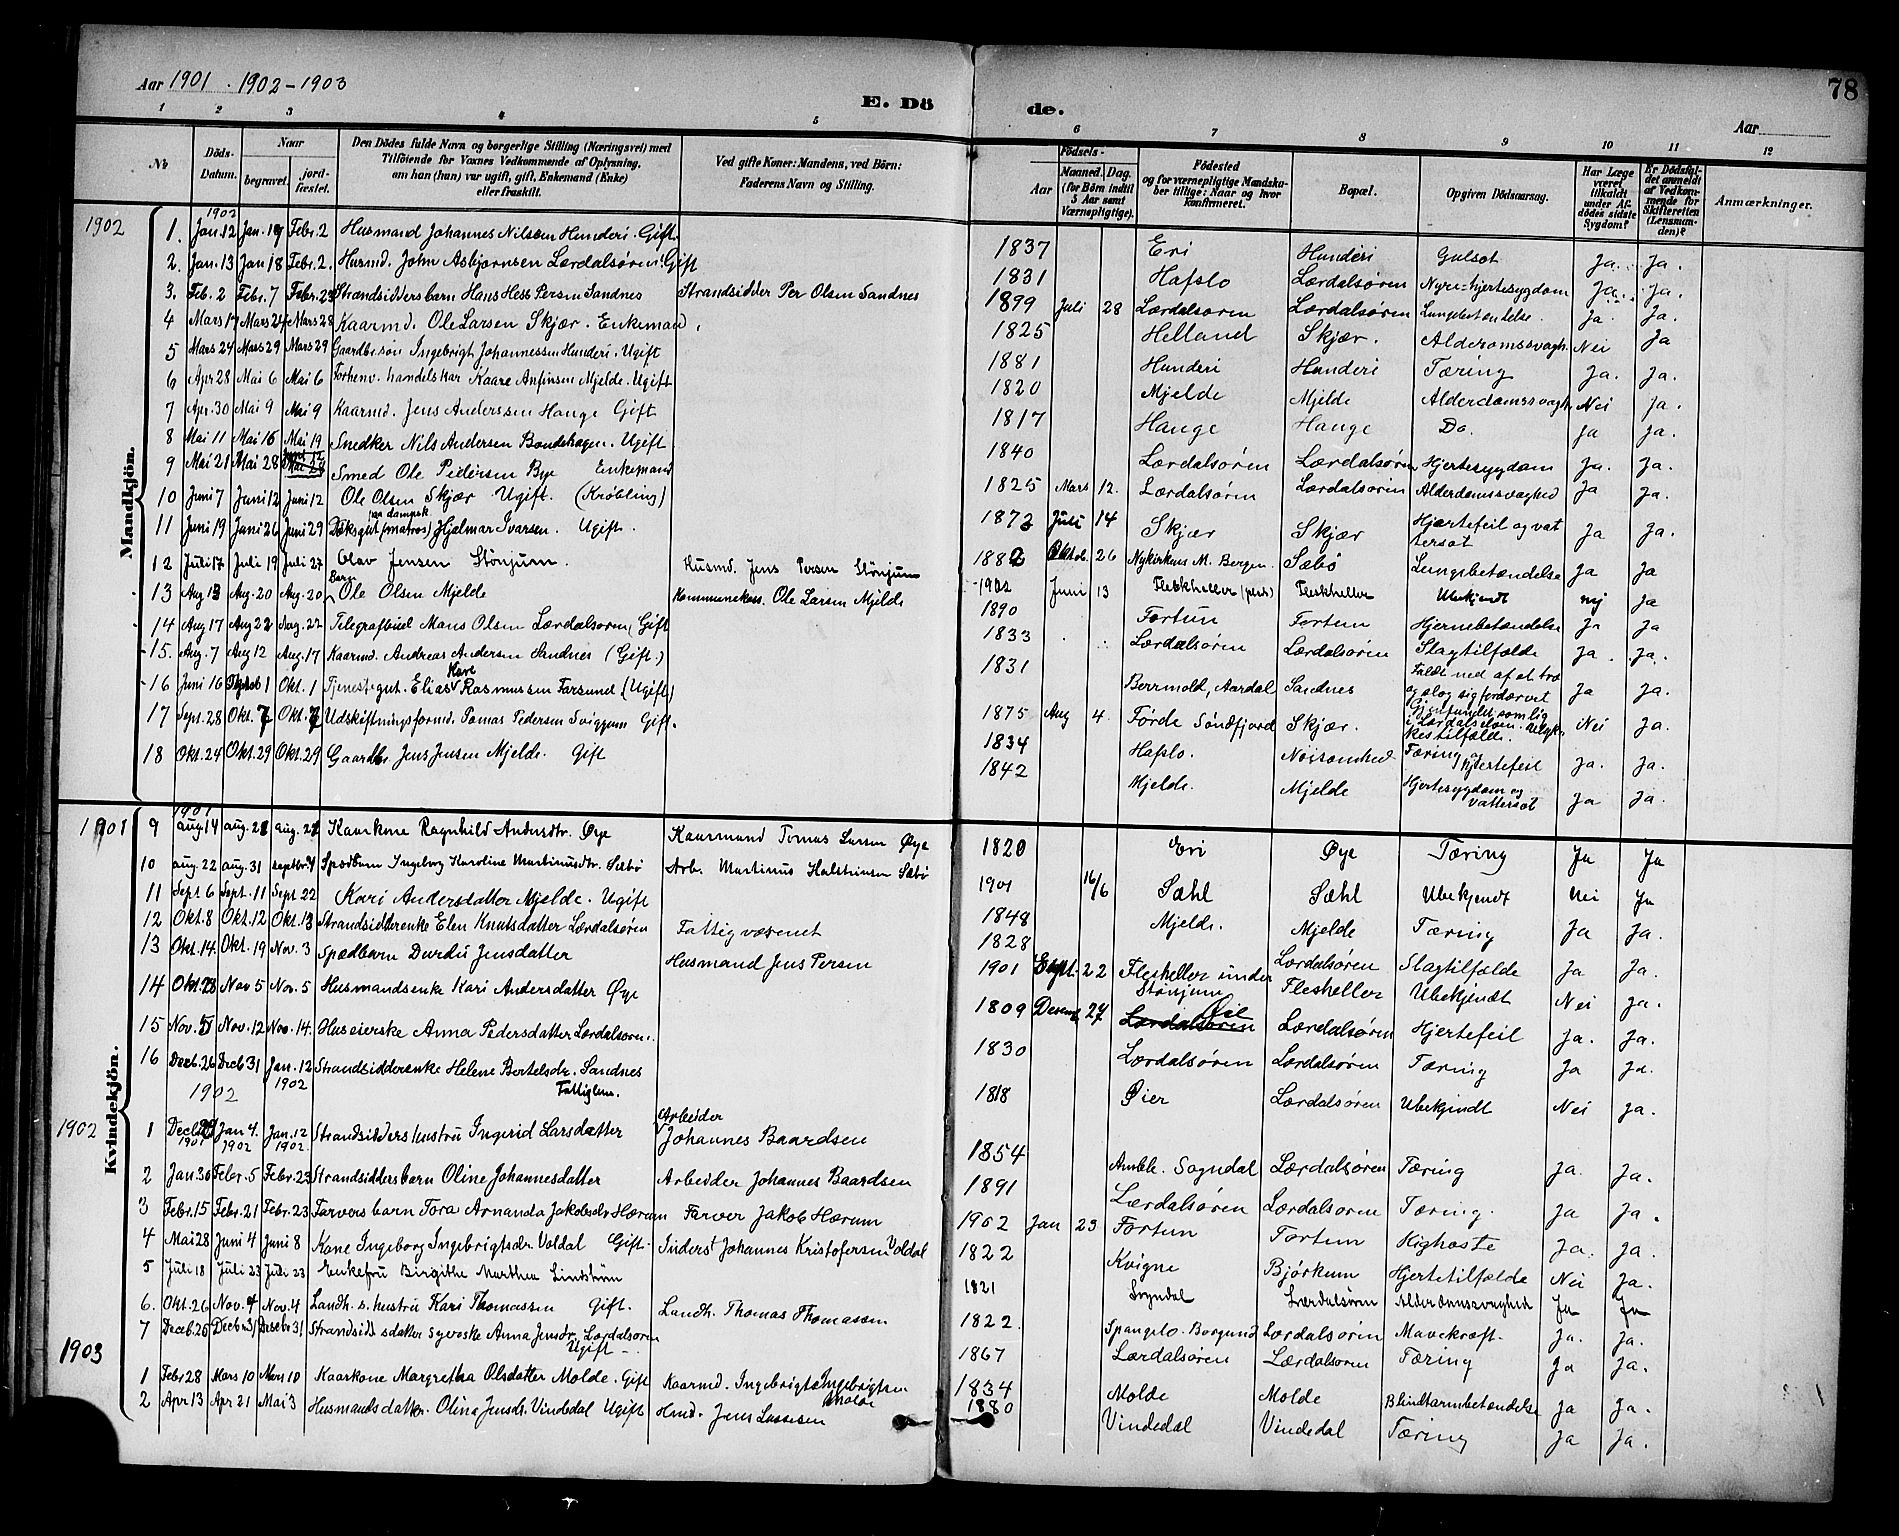 Aar 1901 . 1902 - 1903
E. Döde.
78
Aar
1 2 3 4 5 6 7 8 9 10 11 12
No
Döds-Datum.
Naar
begravet.
jordfæstet.
Den Dödes fulde Navn og borgerlige Stilling (Næringsvei) med Tilföiende for Voxnes Vedkommende af Oplysning, om han (hun) var ugift, gift, Enkemand (Enke) eller fraskilt.
Ved gifte Koner: Mandens, ved Börn: Faderens Navn og Stilling.
Födsels-
Aar
Maaned. Dag.
(for Börn indtil 5 Aar samt Værnepligtige).
Födested
og for værnepligtige Mandskaber tillige: Naar og hvor konfirmeret.
Bopæl.
Opgiven Dödsaarsag.
Har Læge været tilkaldt under Afdödes sidste Sygdom?
Er Dödsfaldet anmeldt af Vedkommende for Skifteretten (Lensmanden)?
Anmærkninger.
Mandkjön.
1902
1902
1. Jan. 12 Jan. 19 Febr. 2 Husmand Johannes Nilsen Hunderi. Gift. 1837 Eri Hunderi Gulsot Ja. Ja.
2. Jan. 13 Jan 18 Febr. 2. Husmd. John Asbjørnsen Lærdalsøren. Gift 1831 Hafslo Lærdalsøren Nyre=hjertesygdom Ja. Ja.
3. Feb. 2 Febr. 7 Febr. 23 Strandsiddersbarn Hans Hess Persen Sandnes Strandsidder Per Olsen Sandnes 1899 Juli 28 Lærdalsøren Lærdalsøren Lungebetændelse. Ja. Ja.
4 Mars 17 Mars 24 Mars 28 Kaarmd. Ole Larsen Skjær. Enkemand 1825 Helland Skjær. Alderdomssvagh. Nei Ja
5 Mars 24 Mars 29 Mars 29 Gaardbr. søn Ingebrigt Johannessen Hunderi. Ugift 1881 Hunderi Hunderi Tæring Ja. Ja.
6 Apr 28 Mai 6 Mai 6 Forhenv. handelskar Kaare Anfinsen Mjelde. Ugift 1820 Mjelde Mjelde Alderdomssvagh. Nei Ja.
7 Apr. 30 Mai 9 Mai 9 Kaarmd. Jens Anderssen Hauge Gift 1817 Hauge Hauge Do. Ja Ja.
8 Mai 11 Mai 16 Mai 19 Snedker Nils Andersen Bondehagen. Ugift 1840 Lærdalsøren Lærdalsøren Hjertesygdom Ja. Ja.
9 Mai 21 Mai 28 Juni 12 Smed Ole Pedersen Bye Enkemand 1825 Mars 12. Lærdalsøren Lærdalsøren Alderdomssvaghed Ja Ja.
10 Juni 7 Juni 12 Juni 12 Ole Olsen Skjær Ugift. (Krøbling) 1873 Juli 14 Skjær Skjær Hjertefeil og vattersot Ja Ja.
11 Juni 19 Juni 26 Juni 29 Dæksgut (matros) paa dampsk. Hjalmar Ivarsen. Ugift. 1882 Oktob. 26 Nykirkens M. Bergen. Sæbø Lungebetændelse Ja Ja
12 Juli 17 Juli 19 Juli 27 Olav Jensen Stönjum. Husmd. Jens Persen Stönjum 1902 Juni 13 Fleskheller Ubekjendt nej Ja
13 Aug 13 Aug. 20 Aug. 20 Barn Ole Olsen Mjelde Kommunekass. Ole Larsen Mjelde 1890 Fortun Fortun Hjernebetændelse Ja Ja
14 Aug 17 Aug 22 Aug. 22 Telegrafbud Mons Olsen Lærdalsøren, Gift 1833 Lærdalsøren Lærdalsøren Slagtilfælde Ja. Ja.
15. Aug. 7 Aug 12 Aug. 17 Kaarmd. Andreas Andersen Sandnes (Gift.) 1831 Aardal Sandnes Faldt ned af et træ og slog sig fordærvet Ja Ja.
16 Juni 16 Oktob 1 Okt. 1 Tjenestegut. Elias Kore Rasmussen Farsund (Ugift) 1875 Aug 4. Førde Söndfjord Skjær. Gjenfundet som lig i Lærdalselven. Ulykkestilfælde. Nei Ja.
17 Sept. 28 Okt. 7 Okt. 7 Udskiftningsformd. Tomas Pedersen Sviggum Gift. 1834 Hafslo. Nøisomhed Tæring og Hjertefeil Ja. Ja.
18 Okt. 24 Okt. 29 Okt. 29 Gaardbr. Jens Jensen Mjelde. Gift 1842 Mjelde. Mjelde Hjertesygdom og vattersot Ja Ja.
Kvindekjön.
1901
1901
9 aug 14 aug. 21 aug. 21 Kaarkone Ragnhild Andersdtr. Øye Kaarmand Tomas Larsen Øye 1820 Eri Øye Tæring Ja Ja
10 aug. 22 aug. 31 septbr. 4 Spædbarn Ingeborg Karoline Martinusdtr. Sæbø Arb. Martinus Halstensen Sæbø 1901 16/6 Sæhl Sæhl Ubekjendt Nei Ja
11 Sept 6 Sept. 11 Sept 22 Kari Andersdatter Mjelde. Ugift 1848 Mjelde. Mjelde Tæring Ja Ja.
12 Okt. 8 Okt. 12 Okt. 13 Strandsidderenke Elen Knutsdatter Lærdalsøren Fattigvæsenet 1828 Lærdalsøren Slagtilfælde Ja Ja.
13 Okt. 14 Okt. 19 Nov. 3 Spædbarn Durdei Jensdatter Husmand Jens Persen 1901 Sept. 22 Flesheller under Stönjum Flesheller Ubekjendt Nei Ja.
14 Okt. 28 Nov 5 Nov. 5 Husmandsenke Kari Andersdatter Øye 1809 Desemb 27 Lærdalsøren Øie Lærdalsøren Hjertefeil Ja. Ja.
15 Nov. 5 Nov. 12 Nov. 14. Huseierske Anna Pedersdatter Lærdalsøren. 1830 Lærdalsøren Lærdalsøren Tæring Ja Ja.
16 Decb. 26 Decb 31 Jan. 12 1902 Strandsidderenke Helene Bertelsdr. Sandnes Fattiglem. 1818 Øier Lærdalsøren Ubekjendt Nei Ja.
1902
1902
1 Decb. 1901 Jan 4. 1902 Jan. 12 1902. Strandsidders hustru Ingerid Larsdatter Arbeider Johannes Baardsen 1854 Amble. Sogndal Lærdalsøren Tæring Ja. Ja.
2 Jan. 30 Febr. 5 Febr. 23 Strandsiddersbarn Oline Johannesdatter Arbeider Johannes Baardsen 1891 Lærdalsøren Lærdalsøren Tæring. Ja Ja.
3 Febr. 15 Febr. 21 Febr. 23 Farvers barn Tora Amanda Jakobsdr. Hærum Farver Jakob Hærum 1902 Jan 23 Fortun Fortun Kighoste Ja. Ja.
4 Mai 28 Juni 4 Juni 8 Kone Ingeborg Ingebrigtsdr. Voldal Gift. Inderst Johannes Kristofersen Voldal 1822 Kvigne Bjørkum Hjertetilfælde Nei Ja.
5 Juli 18 Juli 23 Juli 23 Enkefru Birgithe Marthea Lindstrøm 1821 Sogndal Lærdalsøren Alderdomssvaghed Ja Ja
6. Okt. 26 Nov. 4 Nov. 4 Landh. s. hustru Kari Thomassen Gift. Landh. Thomas Thomassen 1822. Spangelo. Borgund Lærdalsøren Mavekræft. Ja. Ja.
7 Decb. 25 Decb 31 Decbr 31 Strandsidd sdatter syerske Anna Jensdr. Lærdalsøren Ugift 1867 Lærdalsøren Lærdalsøren Tæring Ja Ja.
1903
1 Febr 28 Mars 10 Mars 10 Kaarkone Margretha Olsdatter Molde. Gift Kaarmd. Ingebrigt Ingebrigtsen Molde 1834 Molde Molde Blindtarmbetændelse Ja Ja.
2 Apr 13 Apr 21 Mai 3 Husmandsdatter. Olina Jensdr. Vindedal Ugift Hmd. Jens Lassesen 1880 Vindedal Vindedal Tæring Ja Ja.